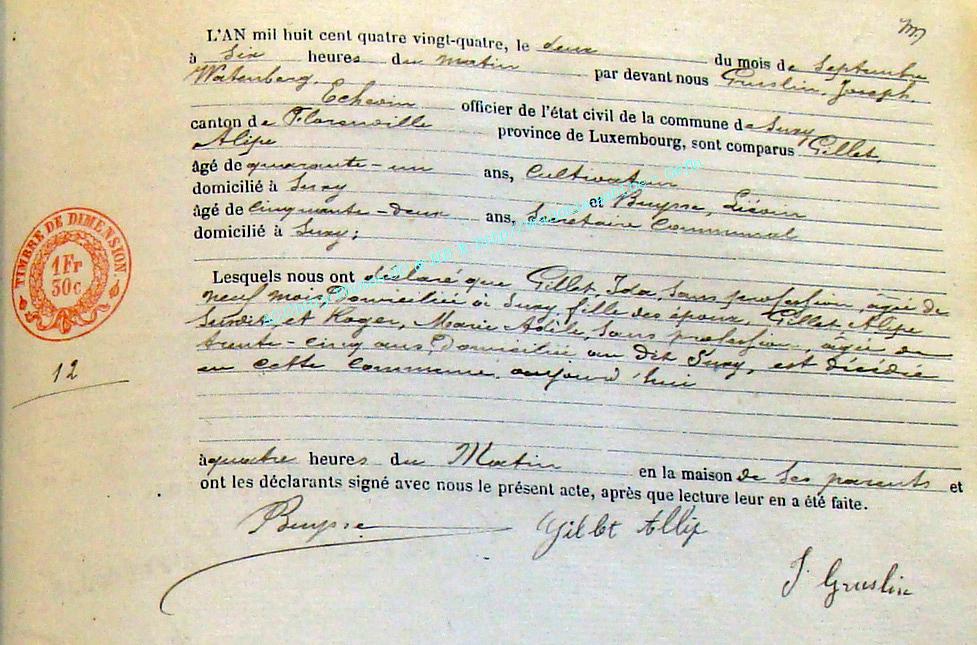 L'AN mil huit cent quatre vingt-quatre, le deux du mois de Septembre
à Six heures du matin par devant nous Gruslin, Joseph,
Watenberg,
Echevin officier de l'état civil de la commune de Suxy
canton de Florenville province de Luxembourg, sont comparus Gillet,
Alipe
âgé de quarante-un ans, Cultivateur
domicilié à Suxy et Buysse, Liévin
âgé de Cinquante-deux ans, Secrétaire Communal
domicilié à Suxy;
Lesquels nous ont déclaré que Gillet Ida, sans profession, agée de
neuf mois, Domiciliée à Suxy, fille des époux, Gillet Alipe
Susdit, et Roger, Marie Adèle, sans profession, agée de
trente-cinq ans, Domiciliée au dit Suxy, est décédée
en cette Commune, aujourd'hui
à quatre heures du Matin en la maison de ses parents et
ont les déclarants signé avec nous le présent acte, après que lecture leur en a été faite.
Buysse Gillet Allip
J. Gruslin
TIMBRE DE DIMENSION.
1 Fr
30c
12